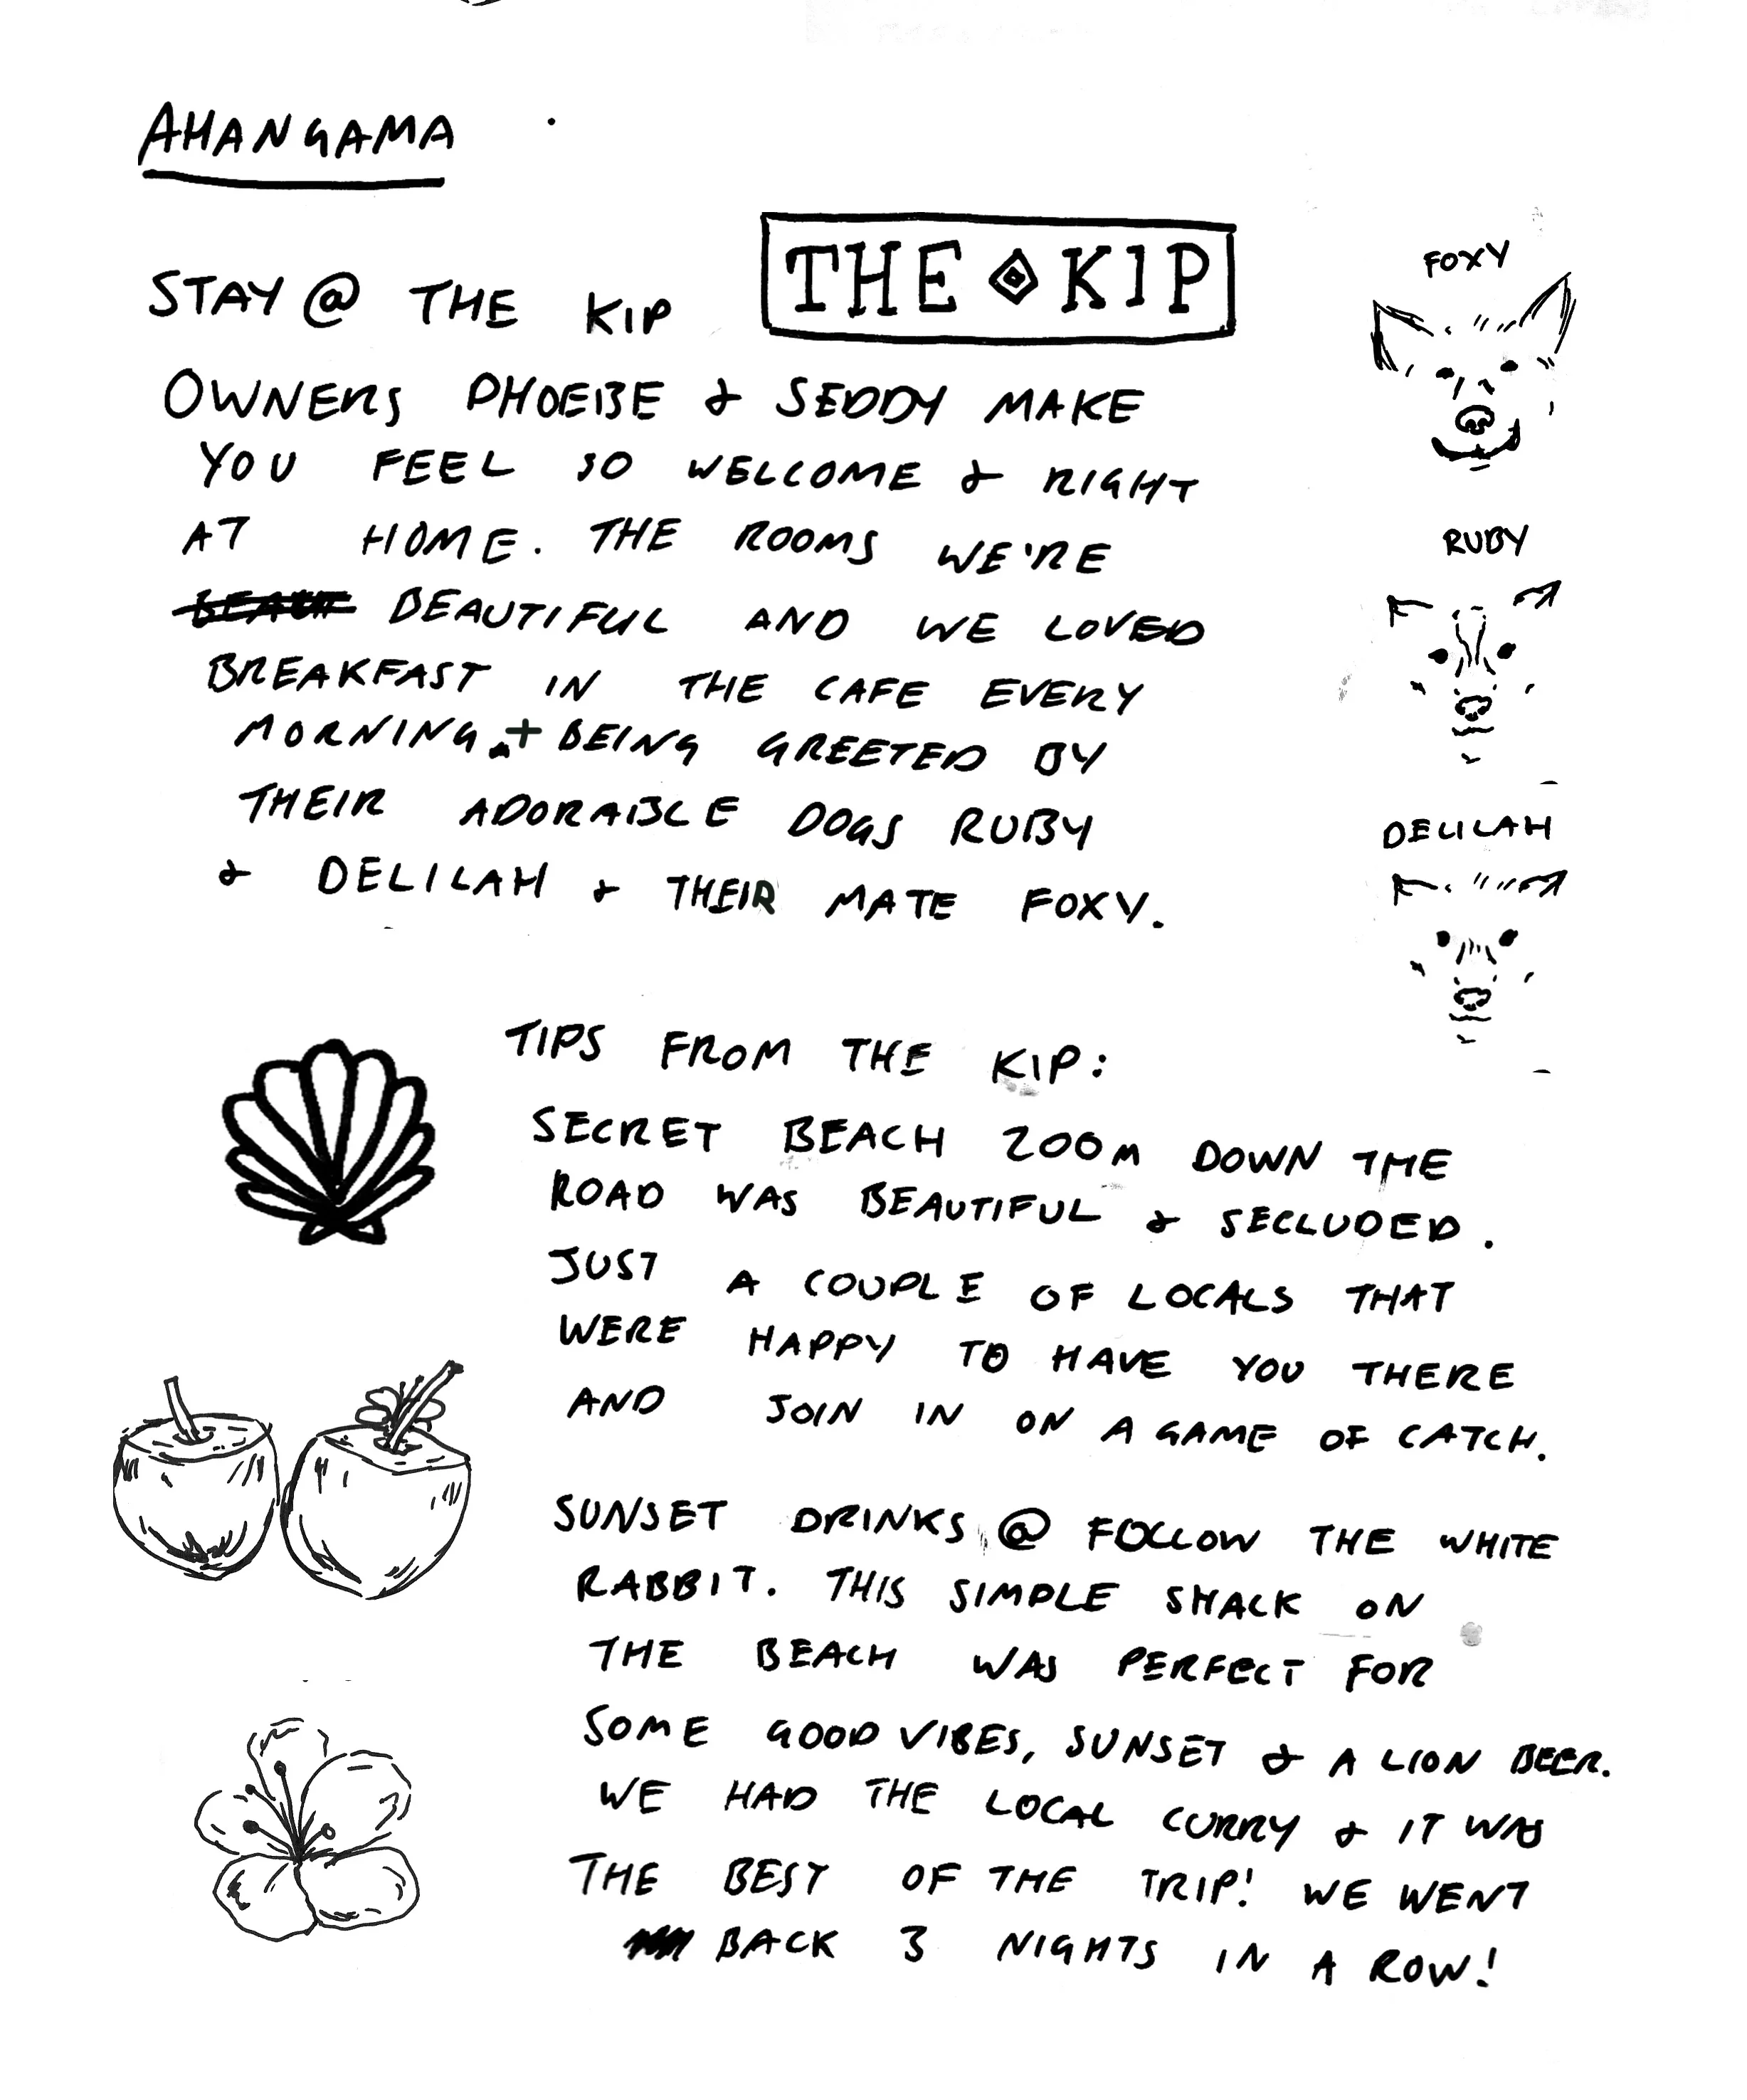 AHANGAMA
STAY @ THE KIP
THE KIP
OWNERS PHOEBE & SEDDY MAKE
YOU FEEL SO WELCOME & RIGHT
AT HOME. THE ROOMS WE'RE
BEAUTIFUL AND WE LOVED
BREAKFAST IN THE CAFE EVERY
MORNING. + BEING GREETED BY
THEIR ADORABLE DOGS RUBY
& DELILAH & THEIR MATE FOXY.
FOXY
RUBY
DELILAH
TIPS FROM THE KIP:
SECRET BEACH 200M DOWN THE
ROAD WAS BEAUTIFUL & SECLUDED.
JUST A COUPLE OF LOCALS THAT
WERE HAPPY TO HAVE YOU THERE
AND JOIN IN ON A GAME OF CATCH.
SUNSET DRINKS @ FOLLOW THE WHITE
RABBIT. THIS SIMPLE SHACK ON
THE BEACH WAS PERFECT FOR
SOME GOOD VIBES, SUNSET & A LION BEER.
WE HAD THE LOCAL CURRY & IT WAS
THE BEST OF THE TRIP! WE WENT
BACK 3 NIGHTS IN A ROW!